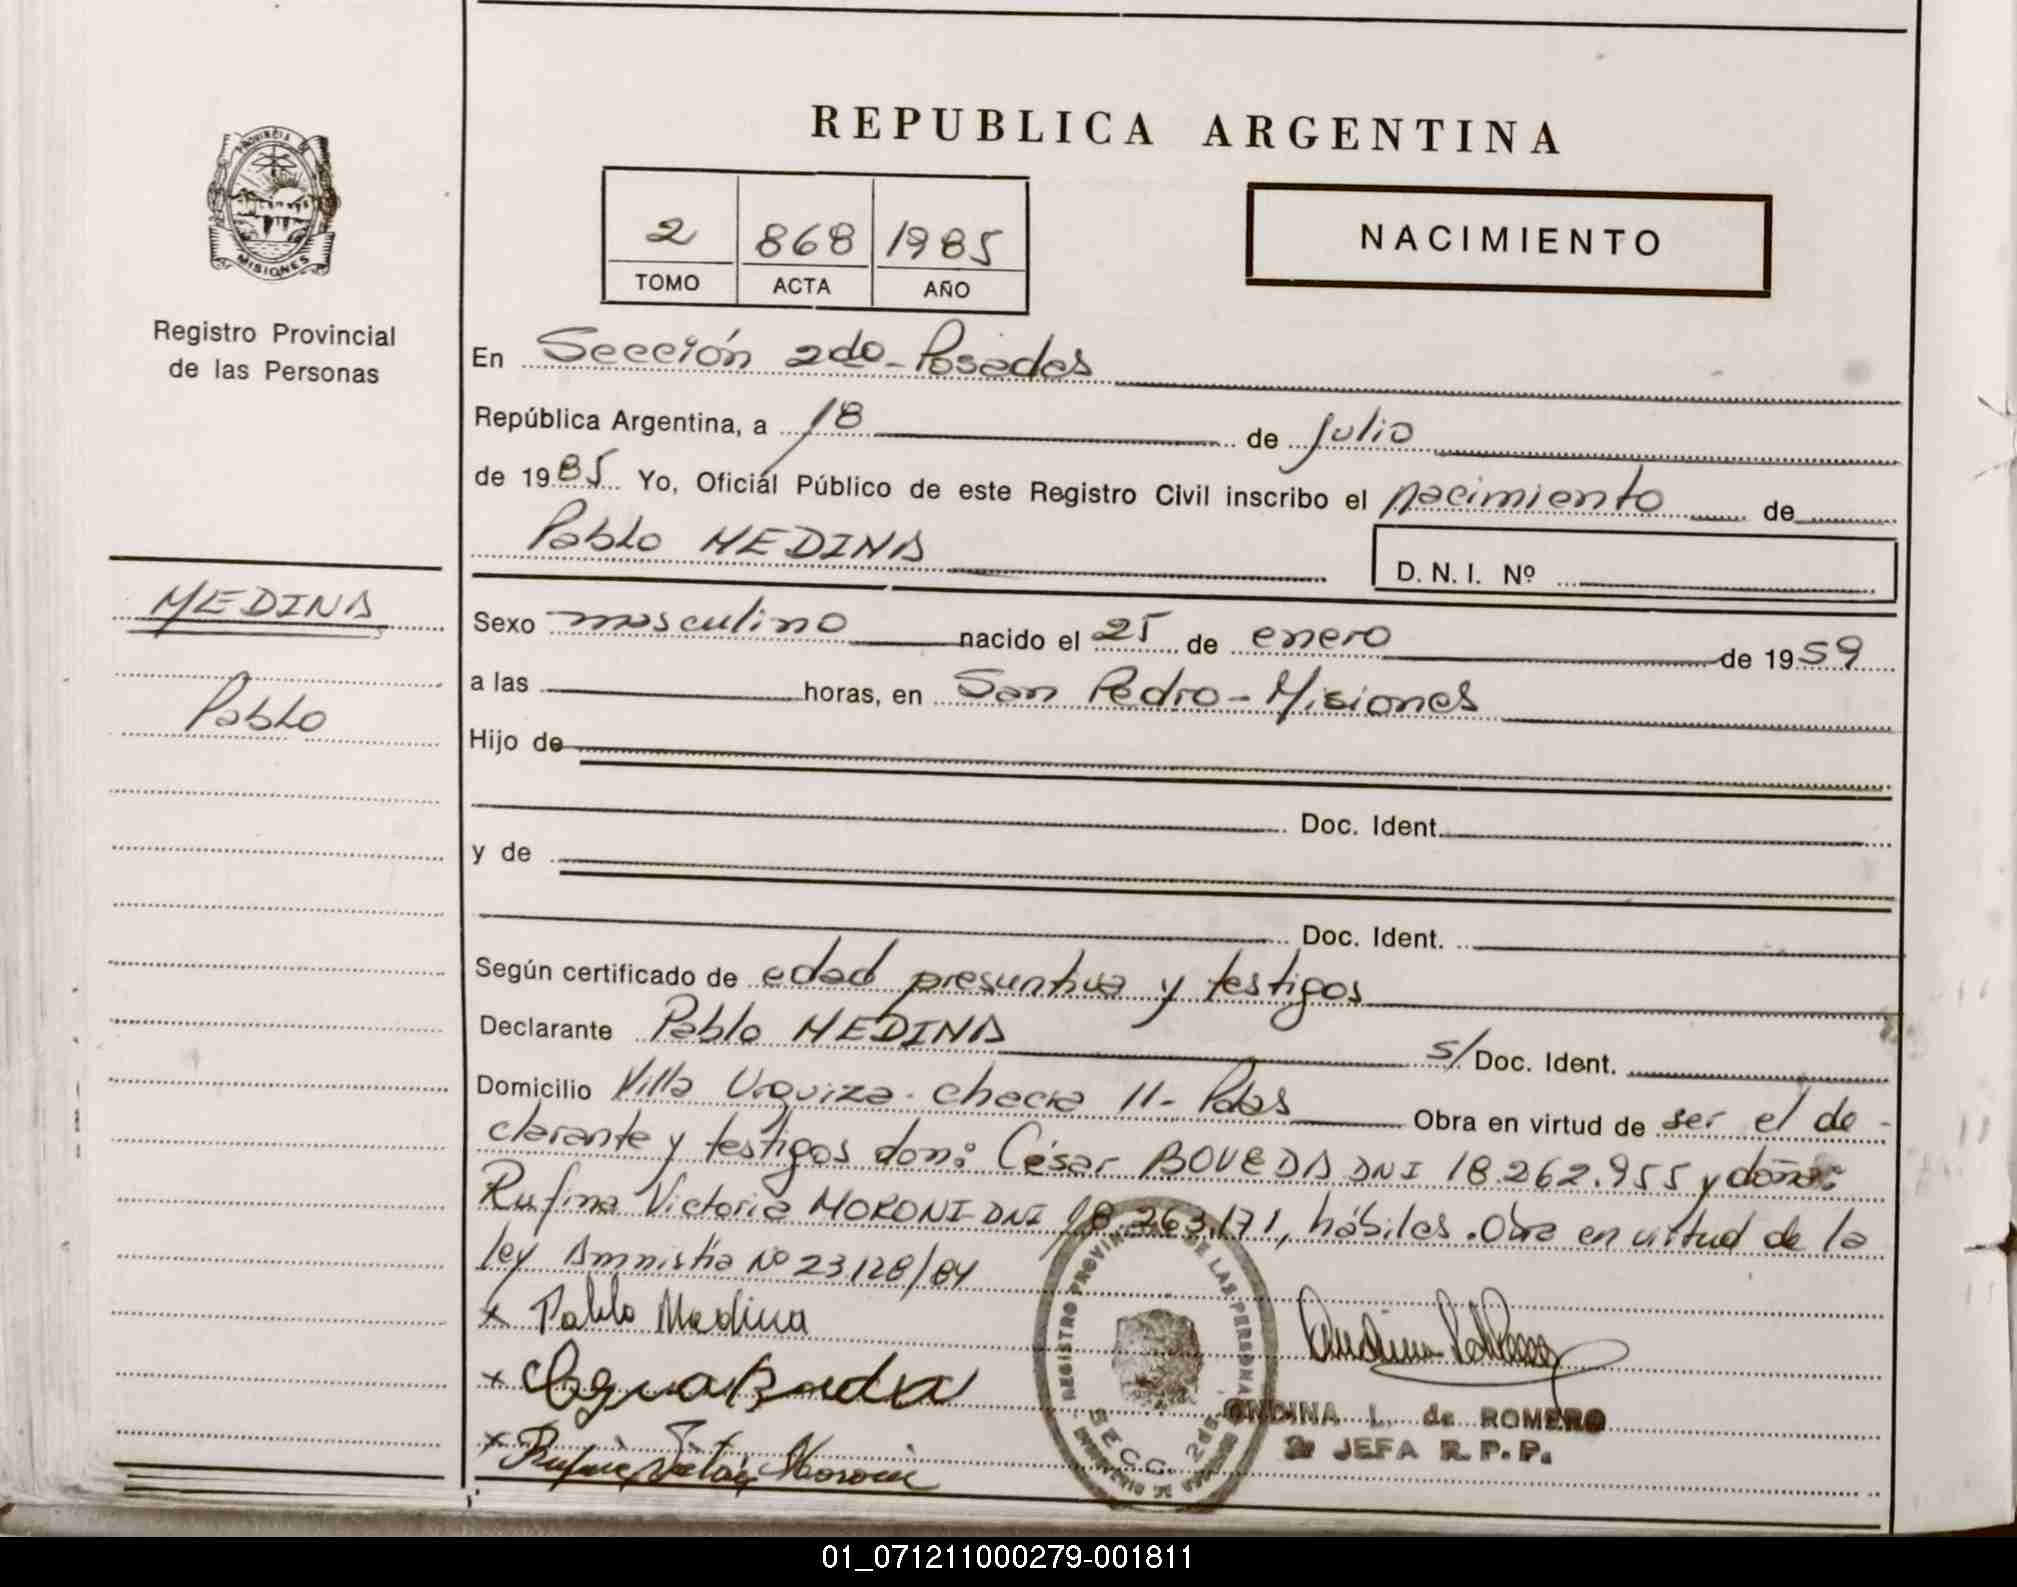 REPUBLICA ARGENTINA
PROVINCIA DE
MISIONES
Registro Provincial
de las Personas
2 868 1985
TOMO ACTA AÑO
NACIMIENTO
En Sección 2do - Posadas
República Argentina, a 18 de Julio
de 1985 Yo, Oficial Público de este Registro Civil inscribo el nacimiento de
Pablo MEDINA
D. N. I. Nº
MEDINA
Pablo
Sexo masculino nacido el 25 de enero de 1959
a las horas, en San Pedro - Misiones
Hijo de
Doc. Ident.
y de
Doc. Ident.
Según certificado de edad presuntiva y testigos
Declarante Pablo MEDINA s/ Doc. Ident.
Domicilio Villa Urquiza - chacra 11 - Pdas Obra en virtud de ser el de-
clarante y testigos don: César BOVEDA DNI 18.262.955 y doña:
Rufina Victoria MORONI DNI 18.263.171, hábiles. Obra en virtud de la
ley Amnistia Nº 23128/84
x Pablo Medina
x
x Rufina Victoria Moroni
REGISTRO PROVINCIAL DE LAS PERSONAS
SECC. 2da
ONDINA L. de ROMERO
2ª JEFA R. P. P.
01_071211000279-001811